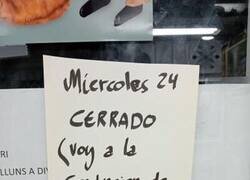 Miercoles 24
CERRADO
(voy a la
RI
LLUNS A DIV